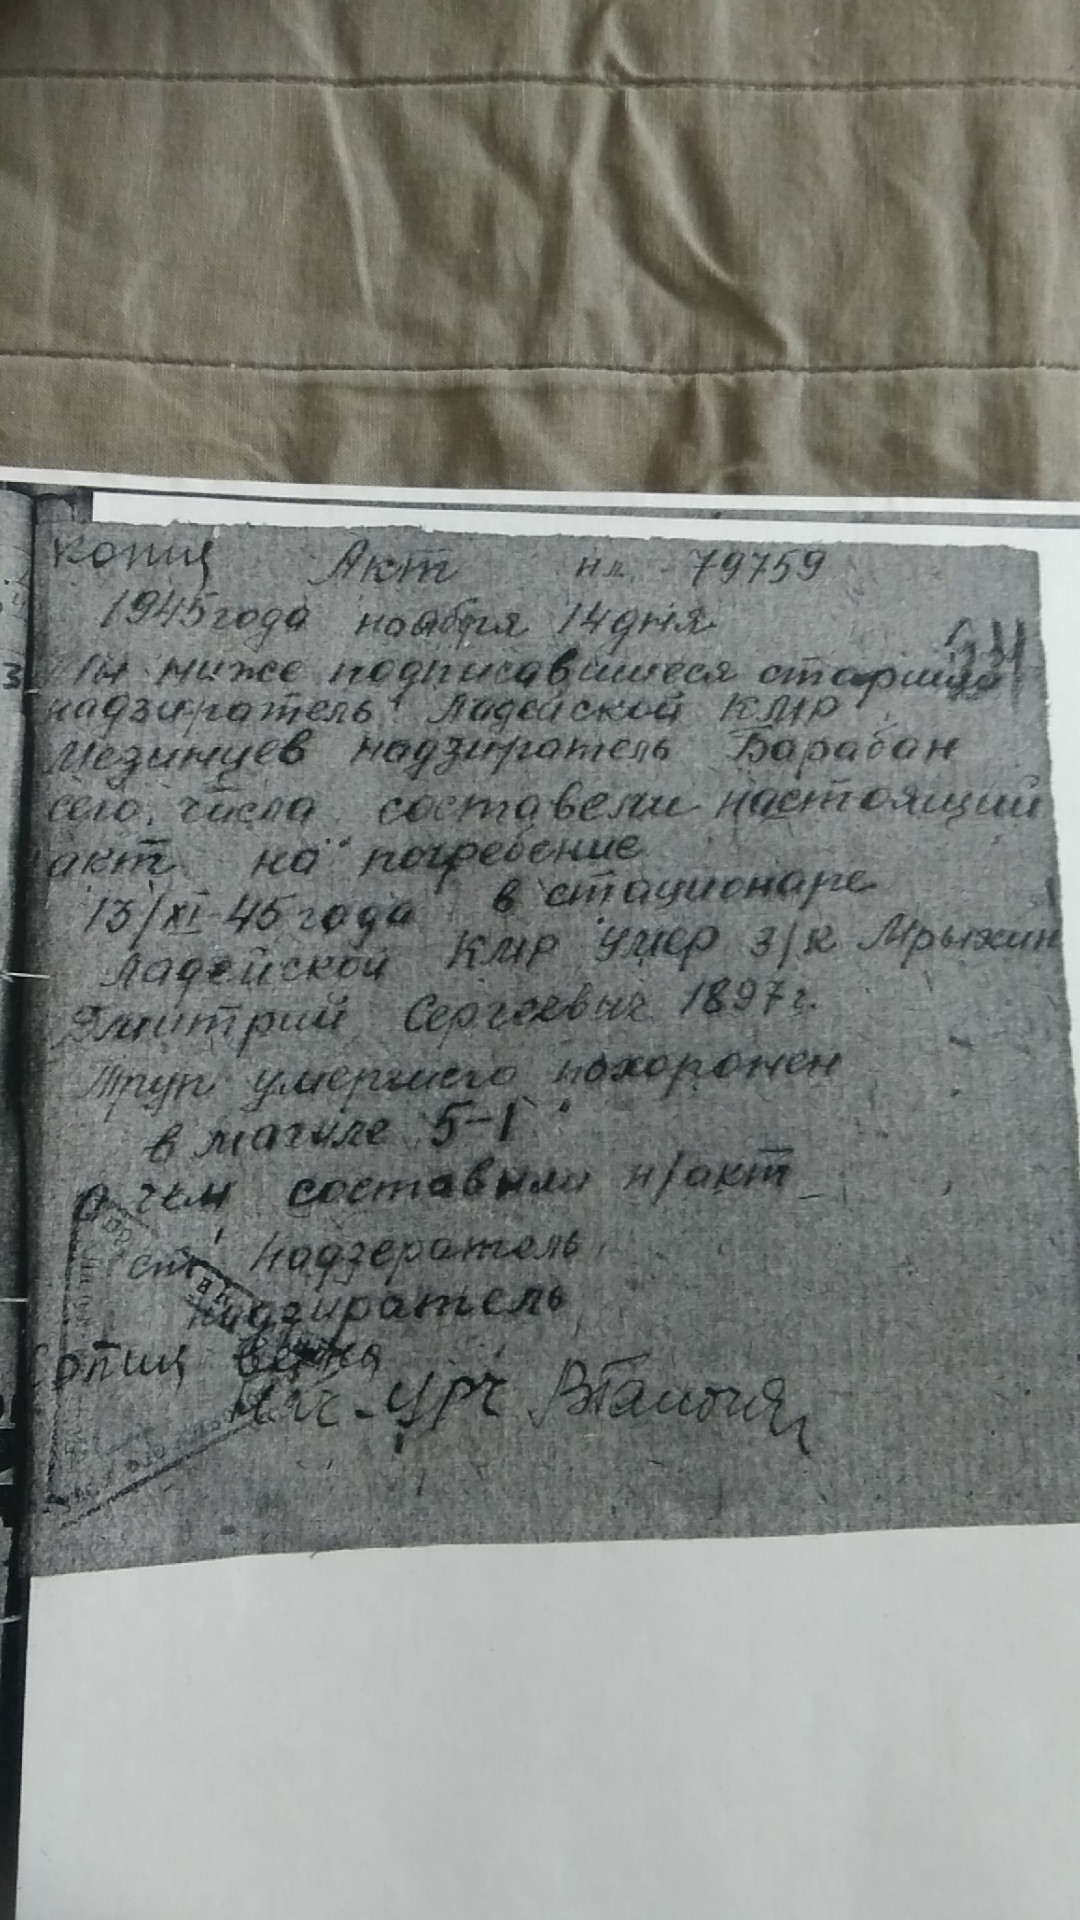 копия Акт нл 79759
1945 года ноября 14 дня
34
Мы ниже подписавшиеся старший
надзиратель Ладейской КМР
Мезинцев надзиратель Барабан
сего числа составели настоящий
акт на погребение
13/XI 45 года в стационаре
Ладейской КМР умер з/к Мрыхин
Дмитрий Сергеевич 1897 г.
Труп умершего похоронен
в магиле 5-1
о чем составили н/акт
ст. Надзератель
надзиратель
Копия верна
Нач. УРЧ